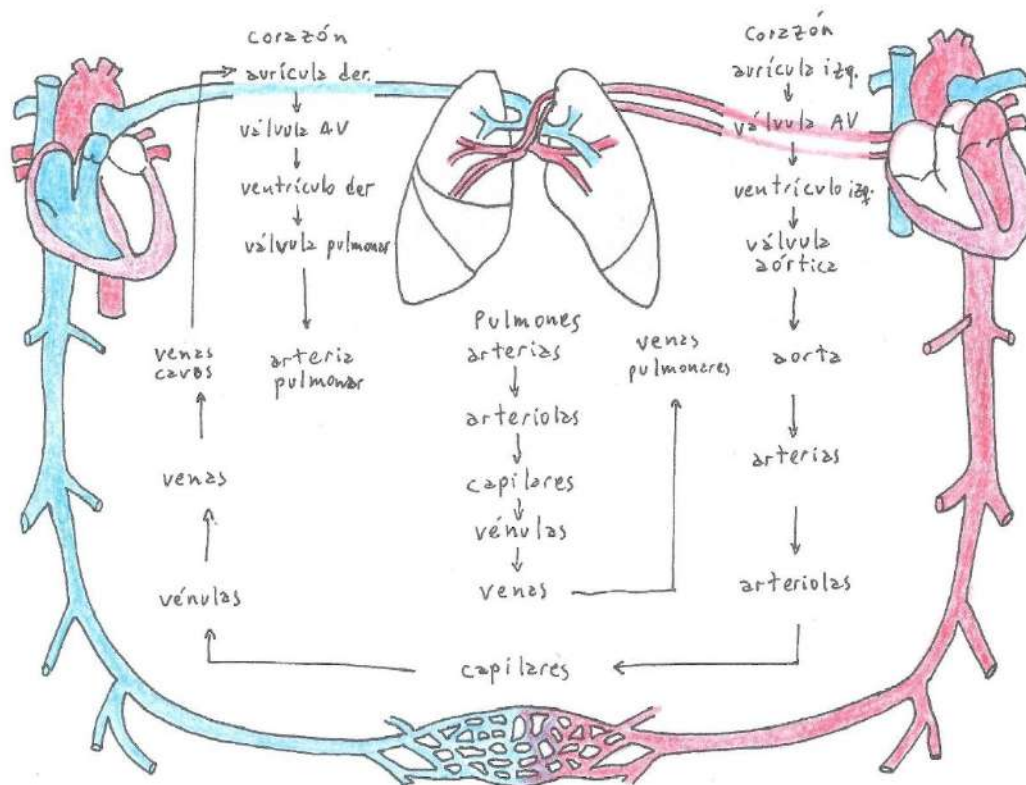 corazón
aurícula der.
válvula AV
ventrículo der
válvula pulmonar
arteria
pulmonar
venas
cavas
venas
vénulas
Pulmones
arterias
arteriolas
capilares
vénulas
venas
venas
pulmonares
corazón
aurícula izq.
válvula AV
ventrículo izq.
válvula
aórtica
aorta
arterias
arteriolas
capilares